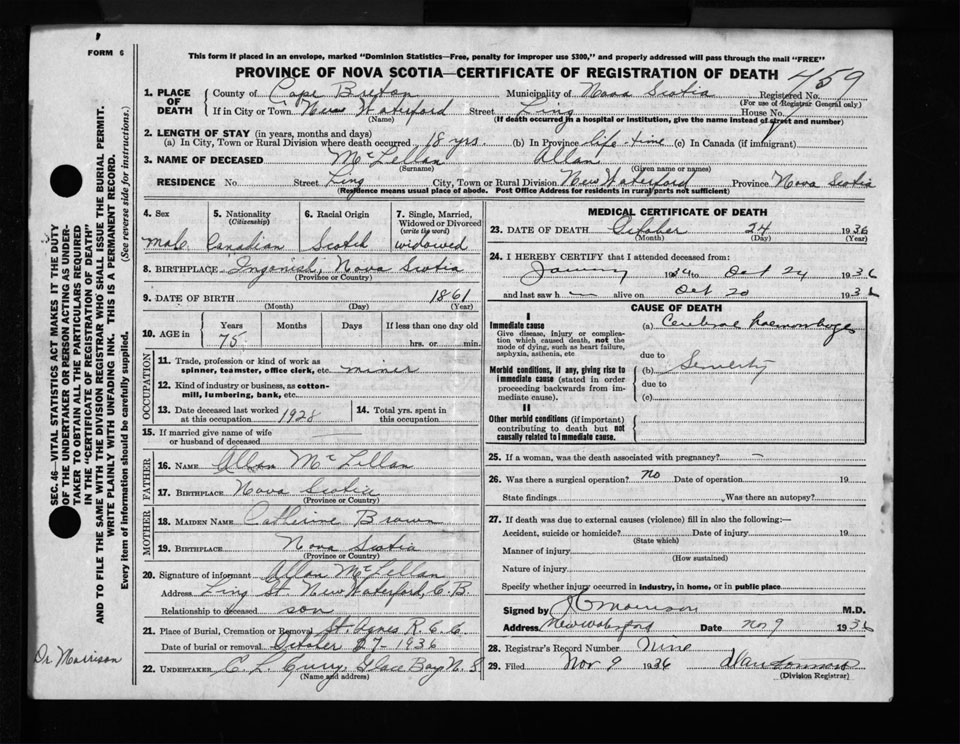 FORM 6
This form if placed in an envelope, marked "Dominion Statistics—Free, penalty for improper use $300," and properly addressed will pass through the mail "FREE"
PROVINCE OF NOVA SCOTIA—CERTIFICATE OF REGISTRATION OF DEATH 459
1. PLACE OF DEATH
County of Cape Breton Municipality of Nova Scotia Registered No.
(For use of Registrar General only)
If in City or Town New Waterford Street Ling House No.
(Name) (If death occurred in a hospital or institution, give the name instead of street and number)
2. LENGTH OF STAY (in years, months and days)
(a) In City, Town or Rural Division where death occurred 18 yrs. (b) In Province life-time (c) In Canada (if immigrant)
3. NAME OF DECEASED McLellan Allan
(Surname) (Given name or names)
RESIDENCE No. Street Ling City, Town or Rural Division New Waterford Province Nova Scotia
(Residence means usual place of abode. Post Office Address for residents in rural parts not sufficient)
4. Sex
Male
5. Nationality
(Citizenship)
Canadian
6. Racial Origin
Scotch
7. Single, Married, Widowed or Divorced
(write the word)
widowed
8. BIRTHPLACE Ingonish, Nova Scotia
(Province or Country)
9. DATE OF BIRTH 1861
(Month) (Day) (Year)
10. AGE in Years Months Days If less than one day old
75 hrs. or min.
OCCUPATION
11. Trade, profession or kind of work as
spinner, teamster, office clerk, etc. miner
12. Kind of industry or business, as cotton-
mill, lumbering, bank, etc.
13. Date deceased last worked
at this occupation 1928
14. Total yrs. spent in
this occupation
15. If married give name of wife
or husband of deceased
FATHER
16. NAME Allan McLellan
17. BIRTHPLACE Nova Scotia
(Province or Country)
MOTHER
18. MAIDEN NAME Catherine Brown
19. BIRTHPLACE Nova Scotia
(Province or Country)
20. Signature of informant Allan McLellan
Address Ling St. New Waterford, C.B.
Relationship to deceased son
21. Place of Burial, Cremation or Removal St. Agnes R.C.C.
Date of burial or removal October 27-1936
22. UNDERTAKER C. L. Curry, Glace Bay N.S.
(Name and address)
MEDICAL CERTIFICATE OF DEATH
23. DATE OF DEATH October 24 1936
(Month) (Day) (Year)
24. I HEREBY CERTIFY that I attended deceased from:
to Oct 24 1936
and last saw h alive on Oct 20 1936
CAUSE OF DEATH
I
Immediate cause
Give disease, injury or complication which caused death, not the
mode of dying, such as heart failure,
asphyxia, asthenia, etc
(a) Cerebral haemorrhage
due to
Morbid conditions, if any, giving rise to
immediate cause (stated in order
proceeding backwards from immediate cause).
(b)
due to
(c)
II
Other morbid conditions (if important)
contributing to death but not
causally related to immediate cause.
25. If a woman, was the death associated with pregnancy? —
26. Was there a surgical operation? no Date of operation 19
State findings Was there an autopsy?
27. If death was due to external causes (violence) fill in also the following:—
Accident, suicide or homicide? Date of injury 19
(State which)
Manner of injury
(How sustained)
Nature of injury
Specify whether injury occurred in industry, in home, or in public place
Signed by Morrison M.D.
Address New Waterford Date Nov 9 1936
28. Registrar's Record Number Nine
29. Filed Nov 9 1936
(Division Registrar)
SEC. 46—VITAL STATISTICS ACT MAKES IT THE DUTY
OF THE UNDERTAKER OR PERSON ACTING AS UNDER-
TAKER TO OBTAIN ALL THE PARTICULARS REQUIRED
IN THE "CERTIFICATE OF REGISTRATION OF DEATH"
AND TO FILE THE SAME WITH THE DIVISION REGISTRAR WHO SHALL ISSUE THE BURIAL PERMIT.
WRITE PLAINLY WITH UNFADING INK. THIS IS A PERMANENT RECORD.
Every item of information should be carefully supplied. (See reverse side for instructions.)
Dr Morrison